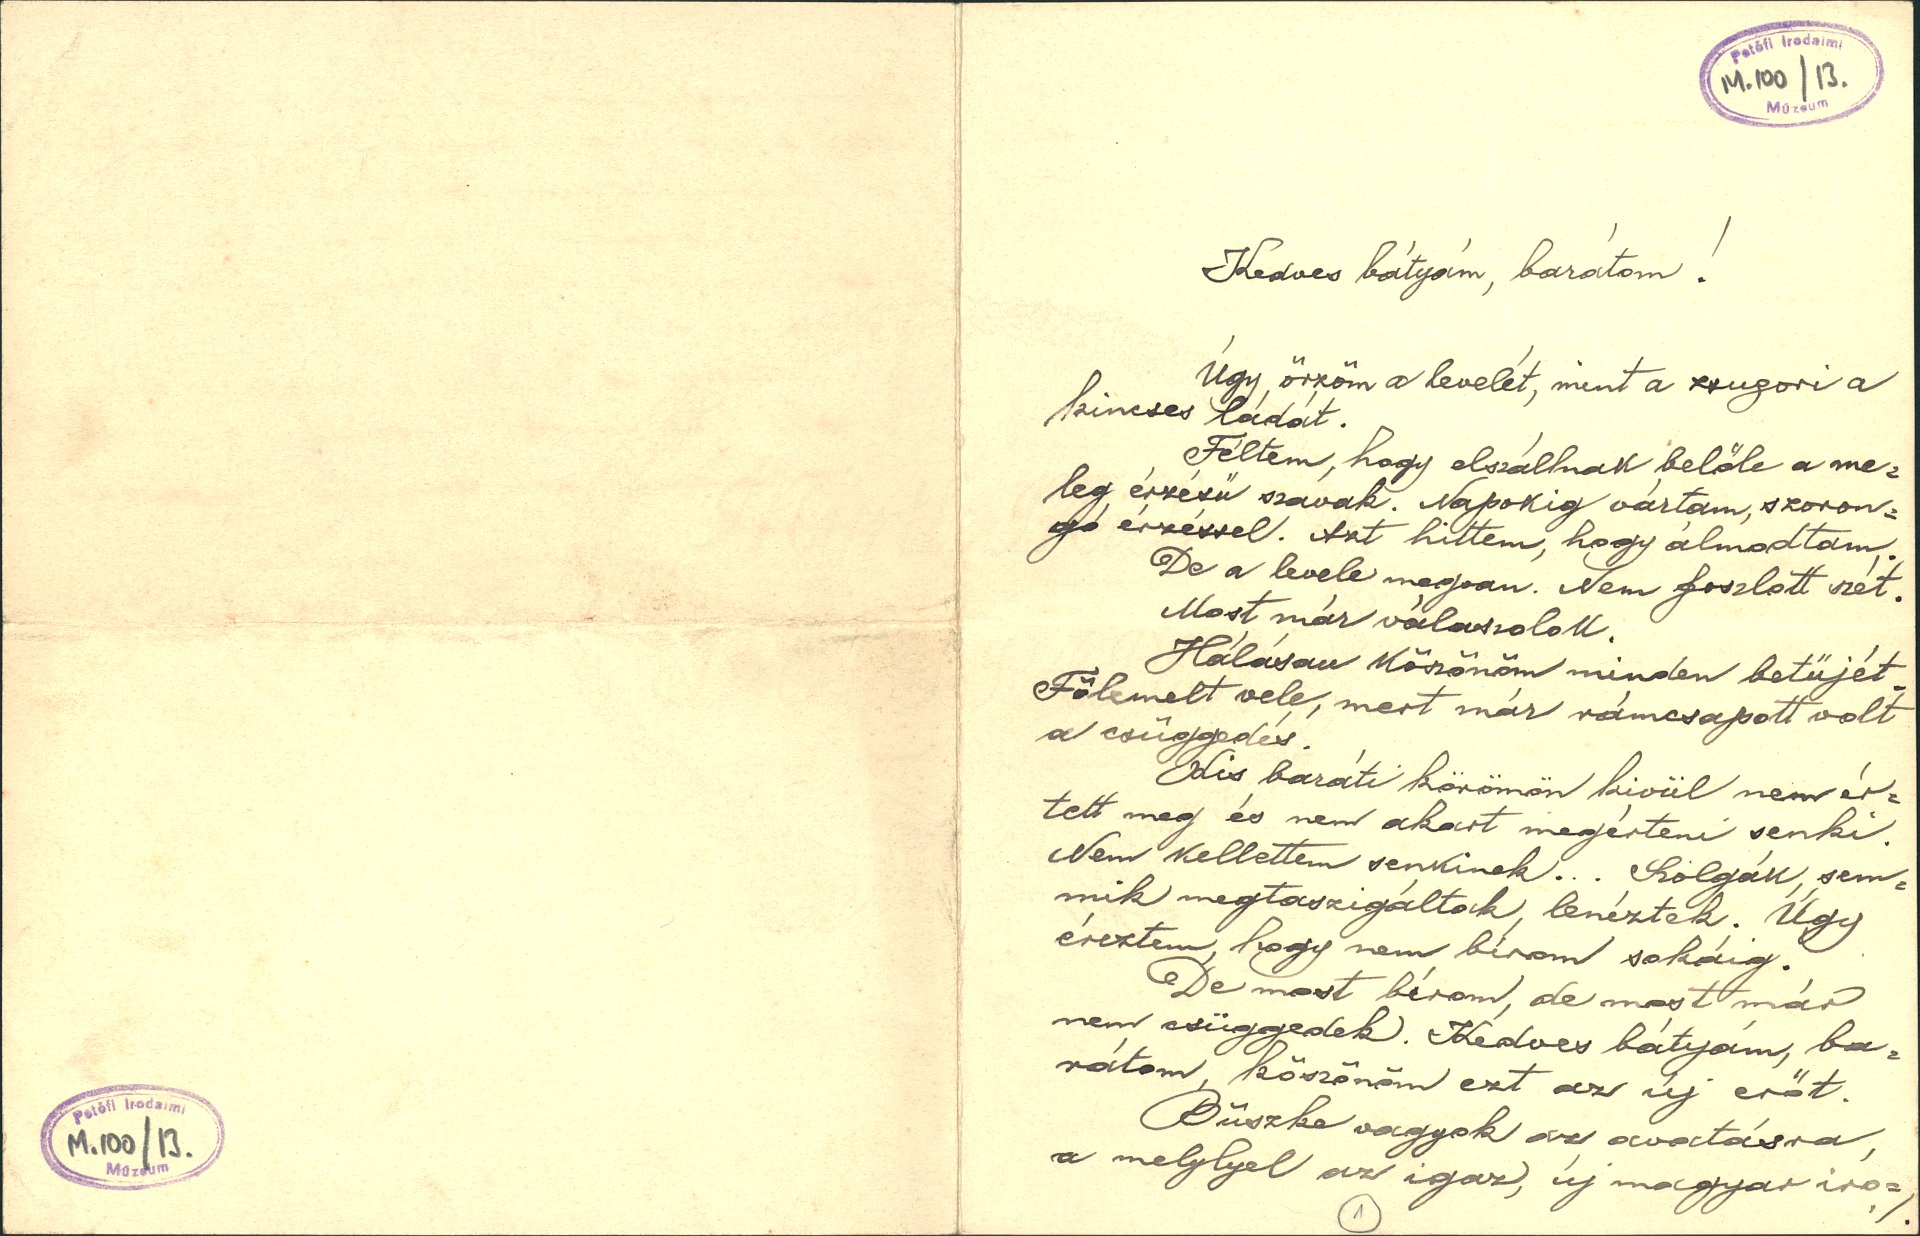 Petőfi Irodalmi
M.100/13.
Múzeum
Kedves bátyám, barátom!
Úgy őrzöm a levelét, mint a zsugori a
kincses ládát.
Féltem, hogy elszállnak belőle a me=
leg érzésű szavak. Napokig vártam, szoron=
gó érzéssel. Azt hittem, hogy álmodtam.
De a levele megvan. Nem foszlott szét.
Most már válaszolok.
Hálásan köszönöm minden betűjét.
Fölemelt vele, mert már rámcsapott volt
a csüggedés.
Kis baráti körömön kivül nem ér=
tett meg és nem akart megérteni senki.
Nem kellettem senkinek... Szolgák, sem=
mik megtaszigáltak, lenéztek. Úgy
éreztem, hogy nem bírom sokáig.
De most bírom, de most már
nem csüggedek. Kedves bátyám, ba=
rátom, köszönöm ezt az új erőt.
Büszke vagyok az avatásra,
a melylyel az igaz, új magyar iro=
./.
1
Petőfi Irodalmi
M.100/13.
Múzeum